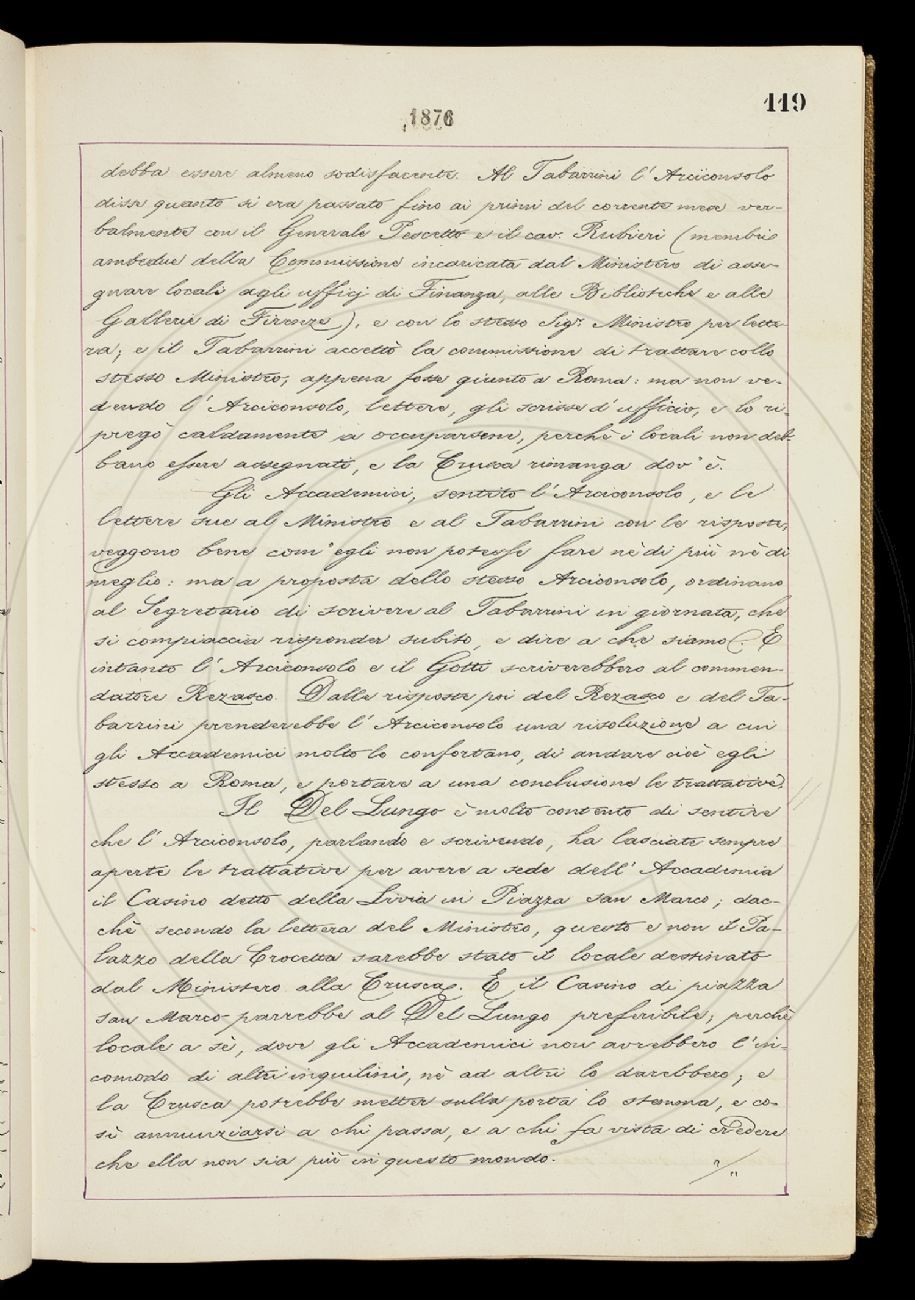 119
1876
debba essere almeno sodisfacente. Al Tabarrini l'Arciconsolo
disse quanto si era passato fino ai primi del corrente mese ver-
balmente con il Generale Pescetto e il cav. Rubieri (membri
ambedue della Commissione incaricata dal Ministero di asse-
gnare locali agli ufficj di Finanza, alle Biblioteche e alle
Gallerie di Firenze), e con lo stesso Sigr. Ministro per lette-
ra; e il Tabarrini accettò la commissione di trattare collo
stesso Ministro, appena fosse giunto a Roma: ma non ve-
dendo l'Arciconsolo, lettere, gli scrisse d'ufficio, e lo ri-
pregò caldamente a occuparsene, perchè i locali non deb-
bano essere assegnati, e la Crusca rimanga dov'è.
Gli Accademici, sentito l'Arciconsolo, e le
lettere sue al Ministro e al Tabarrini con le risposte,
veggono bene com'egli non potesse fare nè di più nè di
meglio: ma a proposta dello stesso Arciconsolo, ordinano
al Segretario di scrivere al Tabarrini in giornata, che
si compiaccia risponder subito, e dire a che siamo. E
intanto l'Arciconsolo e il Gotti scriverebbero al commen-
datore Rezasco. Dalle risposte poi del Rezasco e del Ta-
barrini prenderebbe l'Arciconsolo una risoluzione a cui
gli Accademici molto lo confortano, di andare cioè egli
stesso a Roma, e portare a una conclusione le trattative.
Il Del Lungo è molto contento di sentire
che l'Arciconsolo, parlando e scrivendo, ha lasciate sempre
aperte le trattative per avere a sede dell'Accademia
il Casino detto della Livia in Piazza san Marco; dac-
chè secondo la lettera del Ministro, questo e non il Pa-
lazzo della Crocetta sarebbe stato il locale destinato
dal Ministero alla Crusca. E il Casino di piazza
san Marco parrebbe al Del Lungo preferibile; perchè
locale a sè, dove gli Accademici non avrebbero l'in-
comodo di altri inquilini, nè ad altri lo darebbero; e
la Crusca potrebbe metter sulla porta lo stemma, e co-
sì annunziarsi a chi passa, e a chi fa vista di credere
che ella non sia più in questo mondo.
"/"